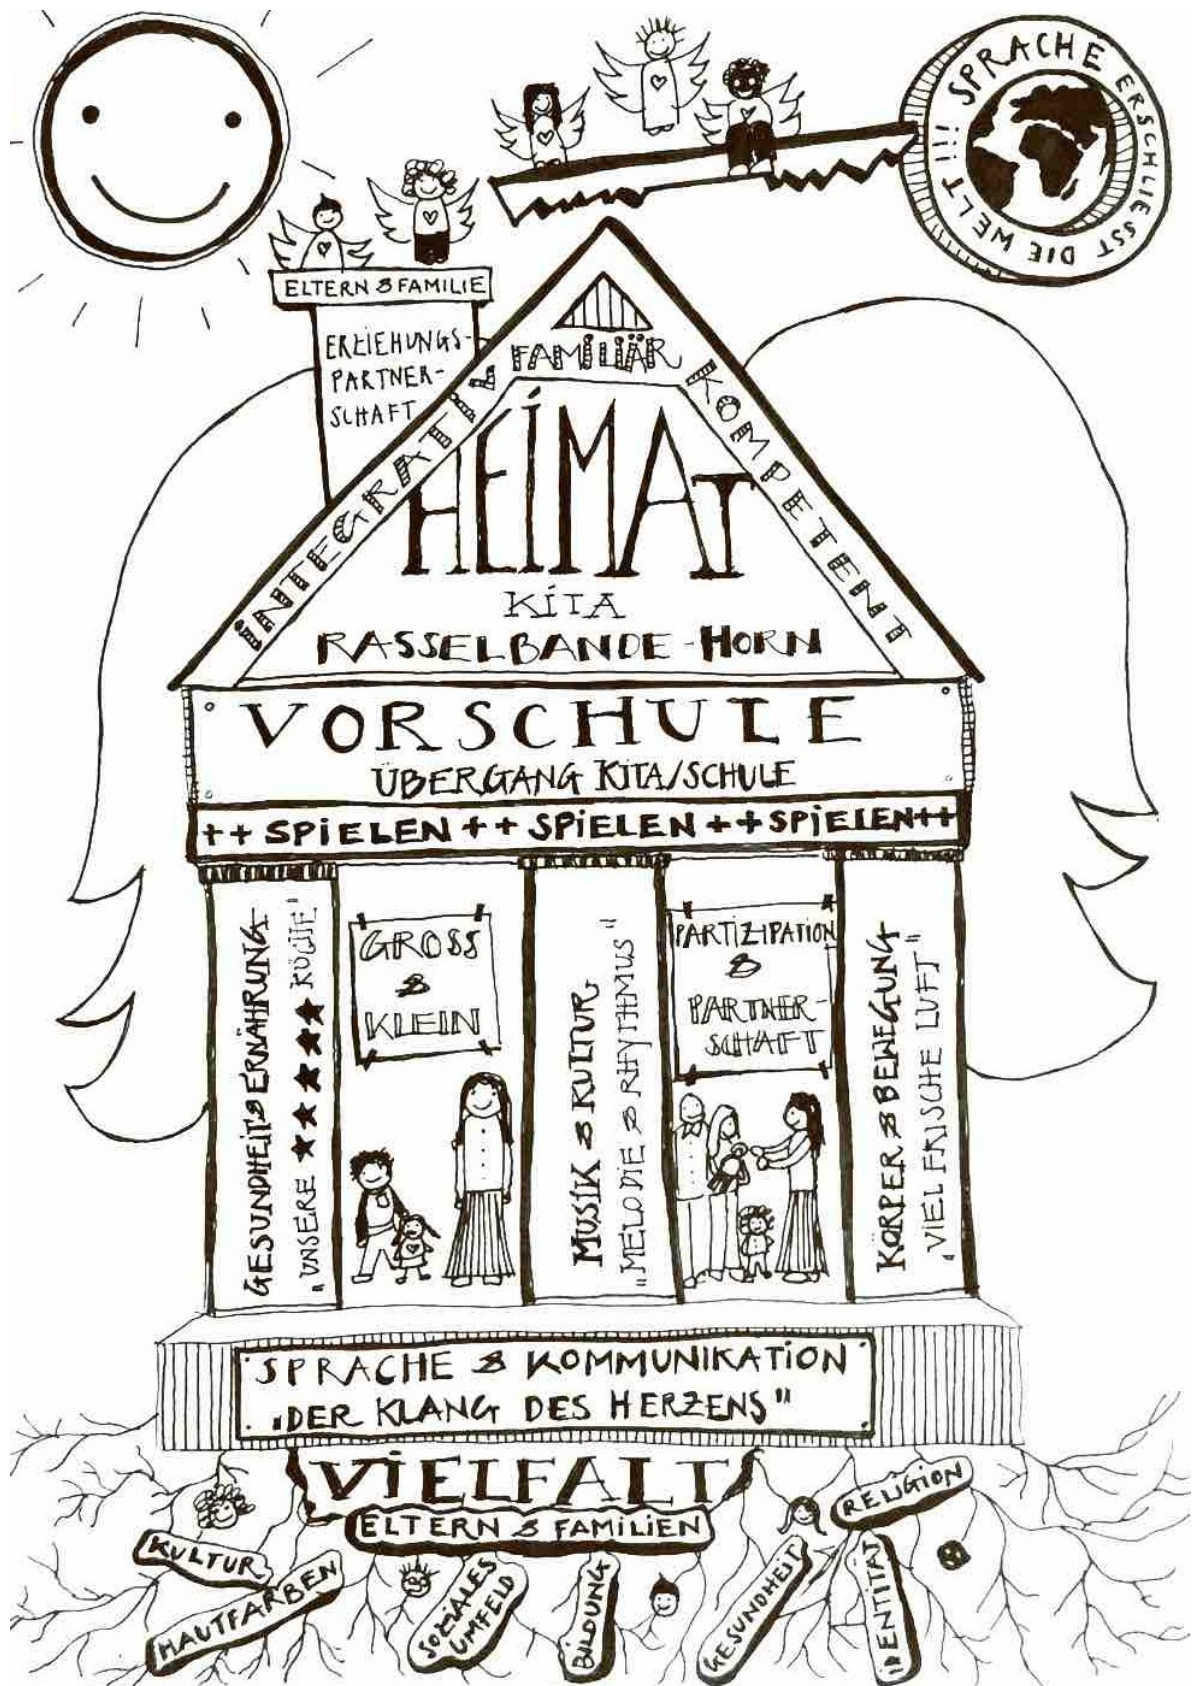 SPRACHE ERSCHLIESST DIE WELT!!!
ELTERN & FAMILIE
ERZIEHUNGS-
PARTNER-
SCHAFT
INTEGRATIV
FAMILIÄR
KOMPETENT
HEIMAT
KITA
RASSELBANDE-HORN
VORSCHULE
ÜBERGANG KITA/SCHULE
++ SPIELEN ++ SPIELEN ++ SPIELEN ++
GESUNDHEIT & ERNÄHRUNG
„UNSERE ★★★★★ KÜCHE"
GROSS
&
KLEIN
MUSIK & KULTUR
„MELODIE & RHYTHMUS"
PARTIZIPATION
&
PARTNER-
SCHAFT
KÖRPER & BEWEGUNG
„VIEL FRISCHE LUFT"
SPRACHE & KOMMUNIKATION
„DER KLANG DES HERZENS"
VIELFALT
ELTERN & FAMILIEN
KULTUR
HAUTFARBEN
SOZIALES
UMFELD
BILDUNG
GESUNDHEIT
RELIGION
IDENTITÄT